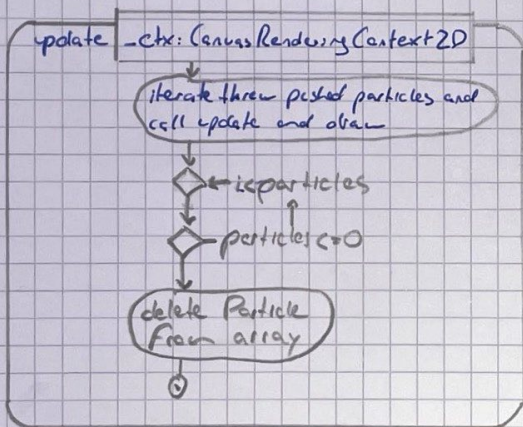 update
_ctx: CanvasRenderingContext2D
iterate threw pushed particles and
call update and draw
is particles
particles <= 0
delete Particle
from array